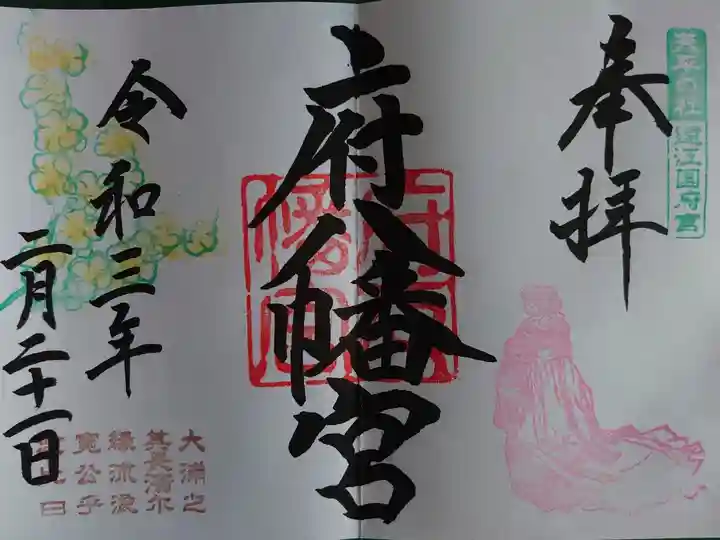 天平の社 遠江国府宮
奉拝
府八幡宮
令和三年
二月二十一日
大浦之
其長濱尓
縁流浪
寛公乎